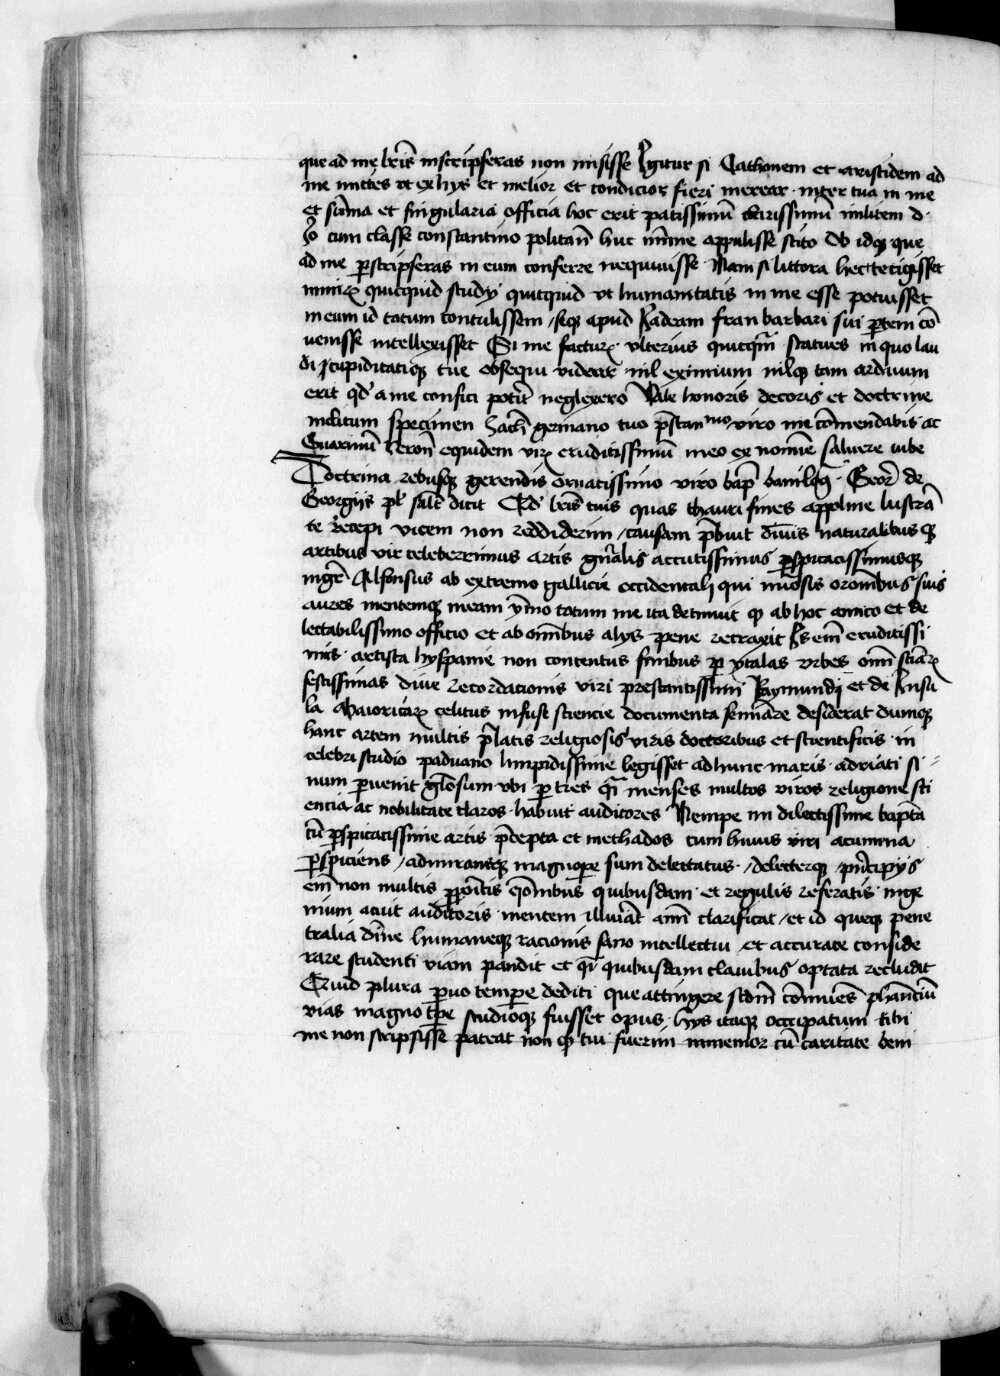 que ad me lr̄is inscripseras non misisse Igitur si Cathonem et aristidem ad
me mittes ut ex hys et melior et condicior fieri merear · inter tua in me
et sūma et singularia officia hoc erit patissimū clarissimū militem d ·
Jo cum classe constantino politan̄ huc mīme appulisse scito Ob idq; que
ad me ꝑscripseras in eum conferre nequivisse · Nam si littora hec tetigisset
nimirꝝ quicquid study quicquid ut humanitatis in me esse potuisset
in eum id totum contulissem / seq; apud Jaderam fran barbari sui ꝑtem cō
uenisse intellexisset Si me facturꝝ ulterius quicq̄m statues in quo lau
di cupiditatiq; tue obsequi videar nil eximium nilq; tam arduum
erit qd̄ a me confici potīt neglexero Vale honoris decoris et doctrine
inclitum specimen Zach̄ germano tuo p̄stan mo viro me cōmendabis ac
Guarinū veron̄ equidem virꝝ eruditissimū meo ex nomīe salvere iube
Doctrina rebusq; gerendis ornatissimo viro bap̄ Geor̄ de
Georgijs sal̄t dicit Qd̄ lr̄is tuis quas thauri fines appoline lustrā
te recepi vicem non reddiderim / causam p̄buit diuīs naturalibus q;
artibus vir celeberrimus artis gn̄alis accutissimus ꝑspicacissimusque
mgr̄ Alfonsus ab extremo gallicie occidentali qui suis
aures mentemq; meam ymo totum me ita detinuit ꝙ ab hoc amico et de
lectabilissimo officio et ab omībus alys pene retraxit Is em̄ eruditissi
mus · artista hyspanie non contentus finibus ꝑ ytalas urbes omī sciarꝝ
festissimas diue recordationis viri prestantissimi Raymundi et de Insu
la Maioricarꝝ celitus infuse sciencie documenta semināre desiderat dumq;
hanc artem multis p̄latis religiosis viris doctoribus et scientificis · in
celebri studio paduano limpidissime legisset ad hunc maris · adriati si
num ꝑuenit gl̄osum ubi ꝑ tres menses multos viros religione sci
encia ac nobilitate claros · habuit auditores Nempe mi dilectissime bapt̄a
cū ꝑspicatissime artis p̄cepta et methados cum huius viri acumina
ꝑspiciens / admiransq; magnoꝑe sum delectatus · / delectorq; / principys
em̄ non multis quibusdam · et regulis reseratis · inge
nium acuit auditoris · mentem illuīat anīm clarificat / et id queq; pene
tralia diuīe humaneq; racionis sano intellectui et accurate conside
rare studenti viam pandit et quibusdam clauibus optata recludit
Quid plura ꝑuo tempore dediti que attingere scdm̄ cōmunes ph̄antium
vias magno tꝑe studioq; fuisset opus · hys itaq; occupatum tibi
me non scripsisse pateat non ꝙ tui fuerim immemor cū caritate beni